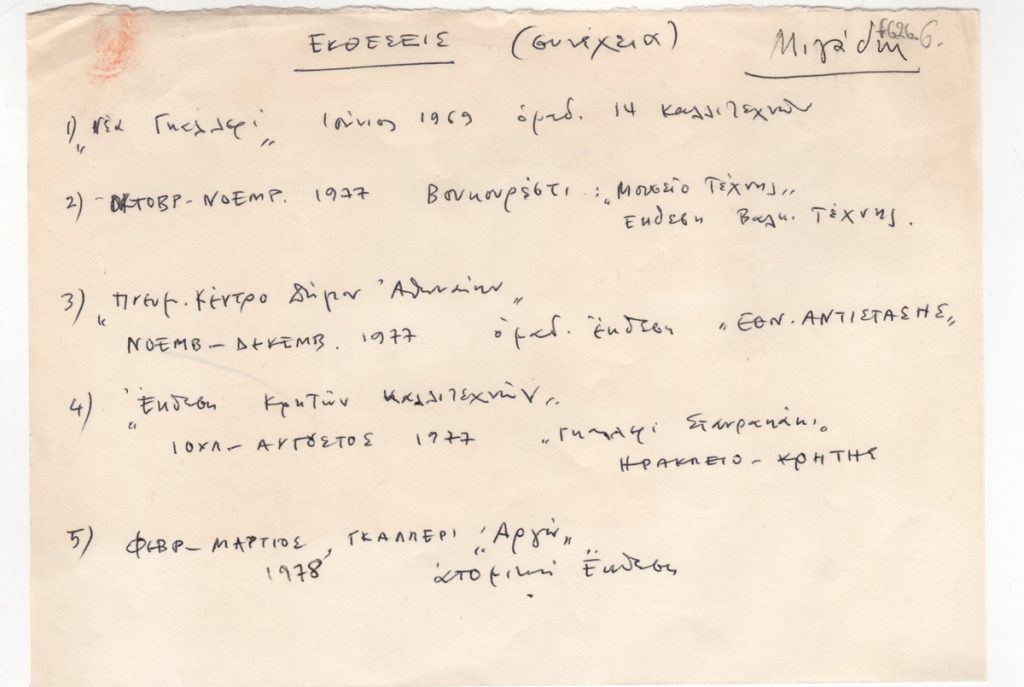 ΕΚΘΕΣΕΙΣ (συνέχεια) Μιγάδη f626.6.
1) „Νέα Γκαλλερί„ Ιούνιος 1969 ὁμαδ. 14 Καλλιτεχνῶν
2) ΟΚΤΟΒΡ-ΝΟΕΜΡ. 1977 Βουκουρέστι: „Μουσείο Τέχνης„
Εκθεση Βαλκ. Τέχνης.
3) „Πνευμ. Κέντρο Δήμου Ἀθηναίων„
ΝΟΕΜΒ-ΔΕΚΕΜΒ. 1977 ὁμαδ. Έκθεση „ΕΘΝ. ΑΝΤΙΣΤΑΣΗΣ„
4) „Ἔκθεση Κρητῶν Καλλιτεχνῶν„
ΙΟΥΛ-ΑΥΓΟΥΣΤΟΣ 1977 „Γκαλερί Σταυρακάκι„
ΗΡΑΚΛΕΙΟ-ΚΡΗΤΗΣ
5) ΦΕΒΡ-ΜΑΡΤΙΟΣ, ΓΚΑΛΛΕΡΙ „Ἀργώ„
1978 ἀτομική Ἔκθεση